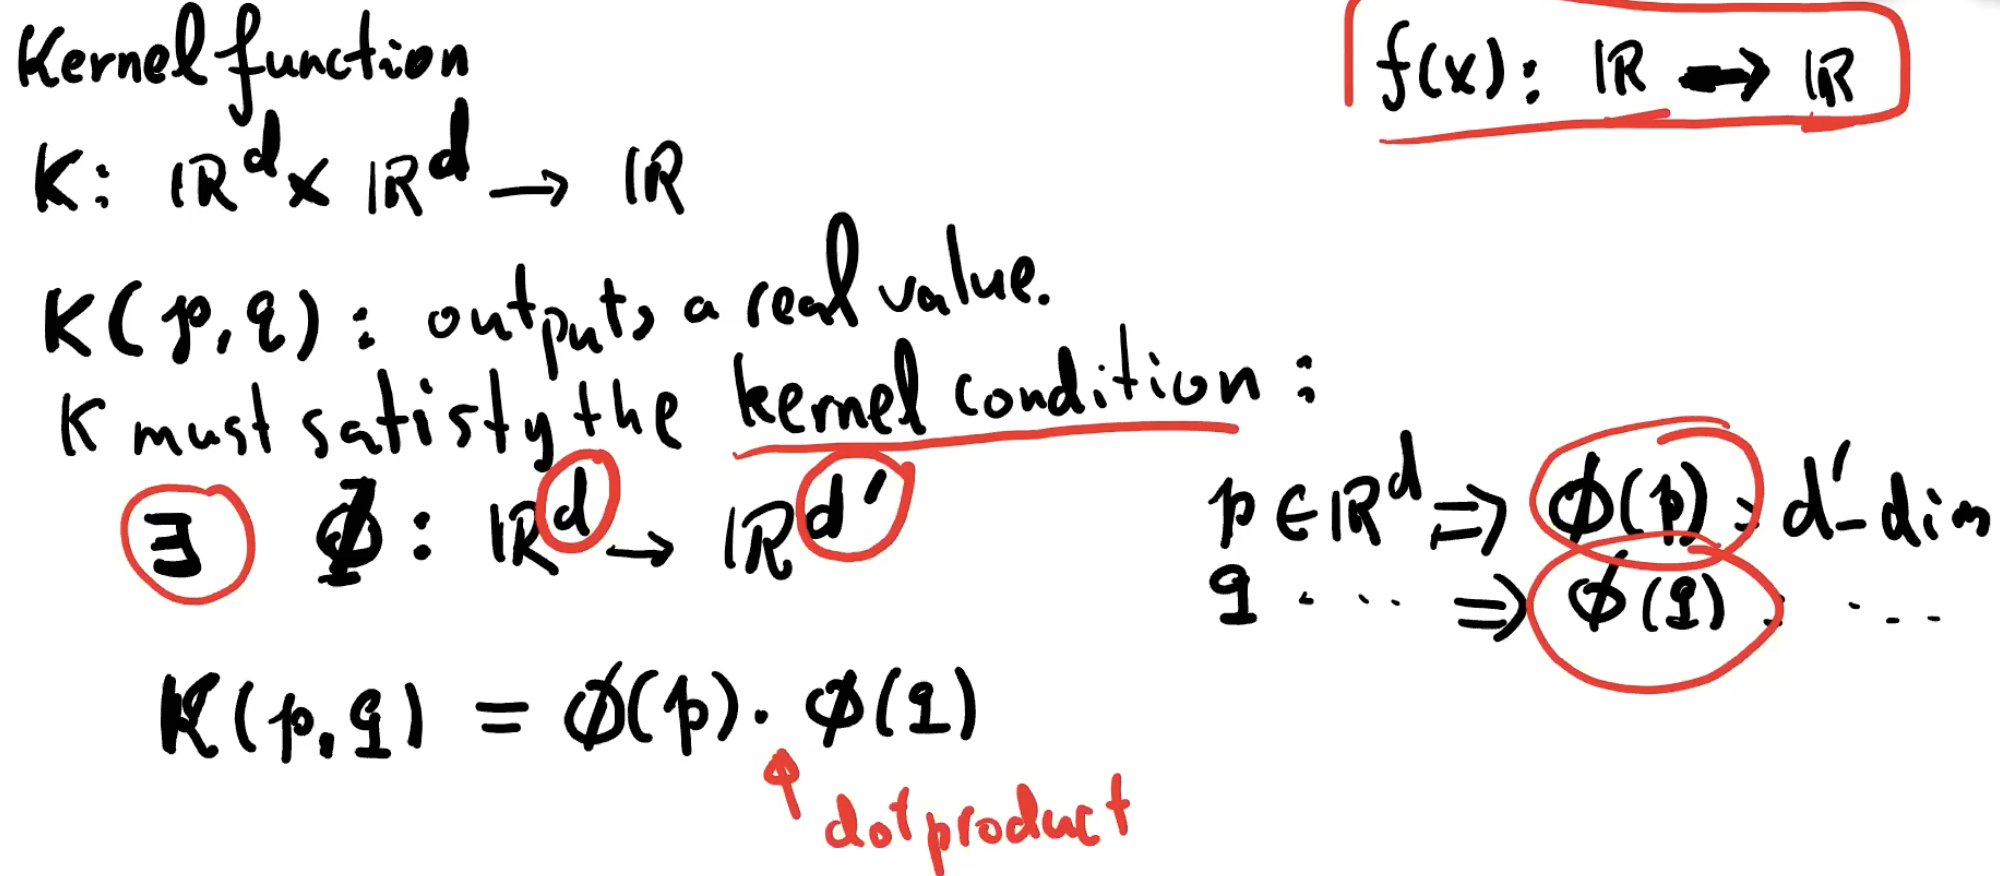 Kernel function
f(x): ℝ → ℝ
K: ℝᵈ × ℝᵈ → ℝ
K(p,q): outputs a real value.
K must satisfy the kernel condition:
∃ Φ: ℝᵈ → ℝᵈ′
p ∈ ℝᵈ ⇒ ϕ(p): d′-dim
q ... ⇒ ϕ(q): ...
K(p,q) = ϕ(p) · ϕ(q)
dot product